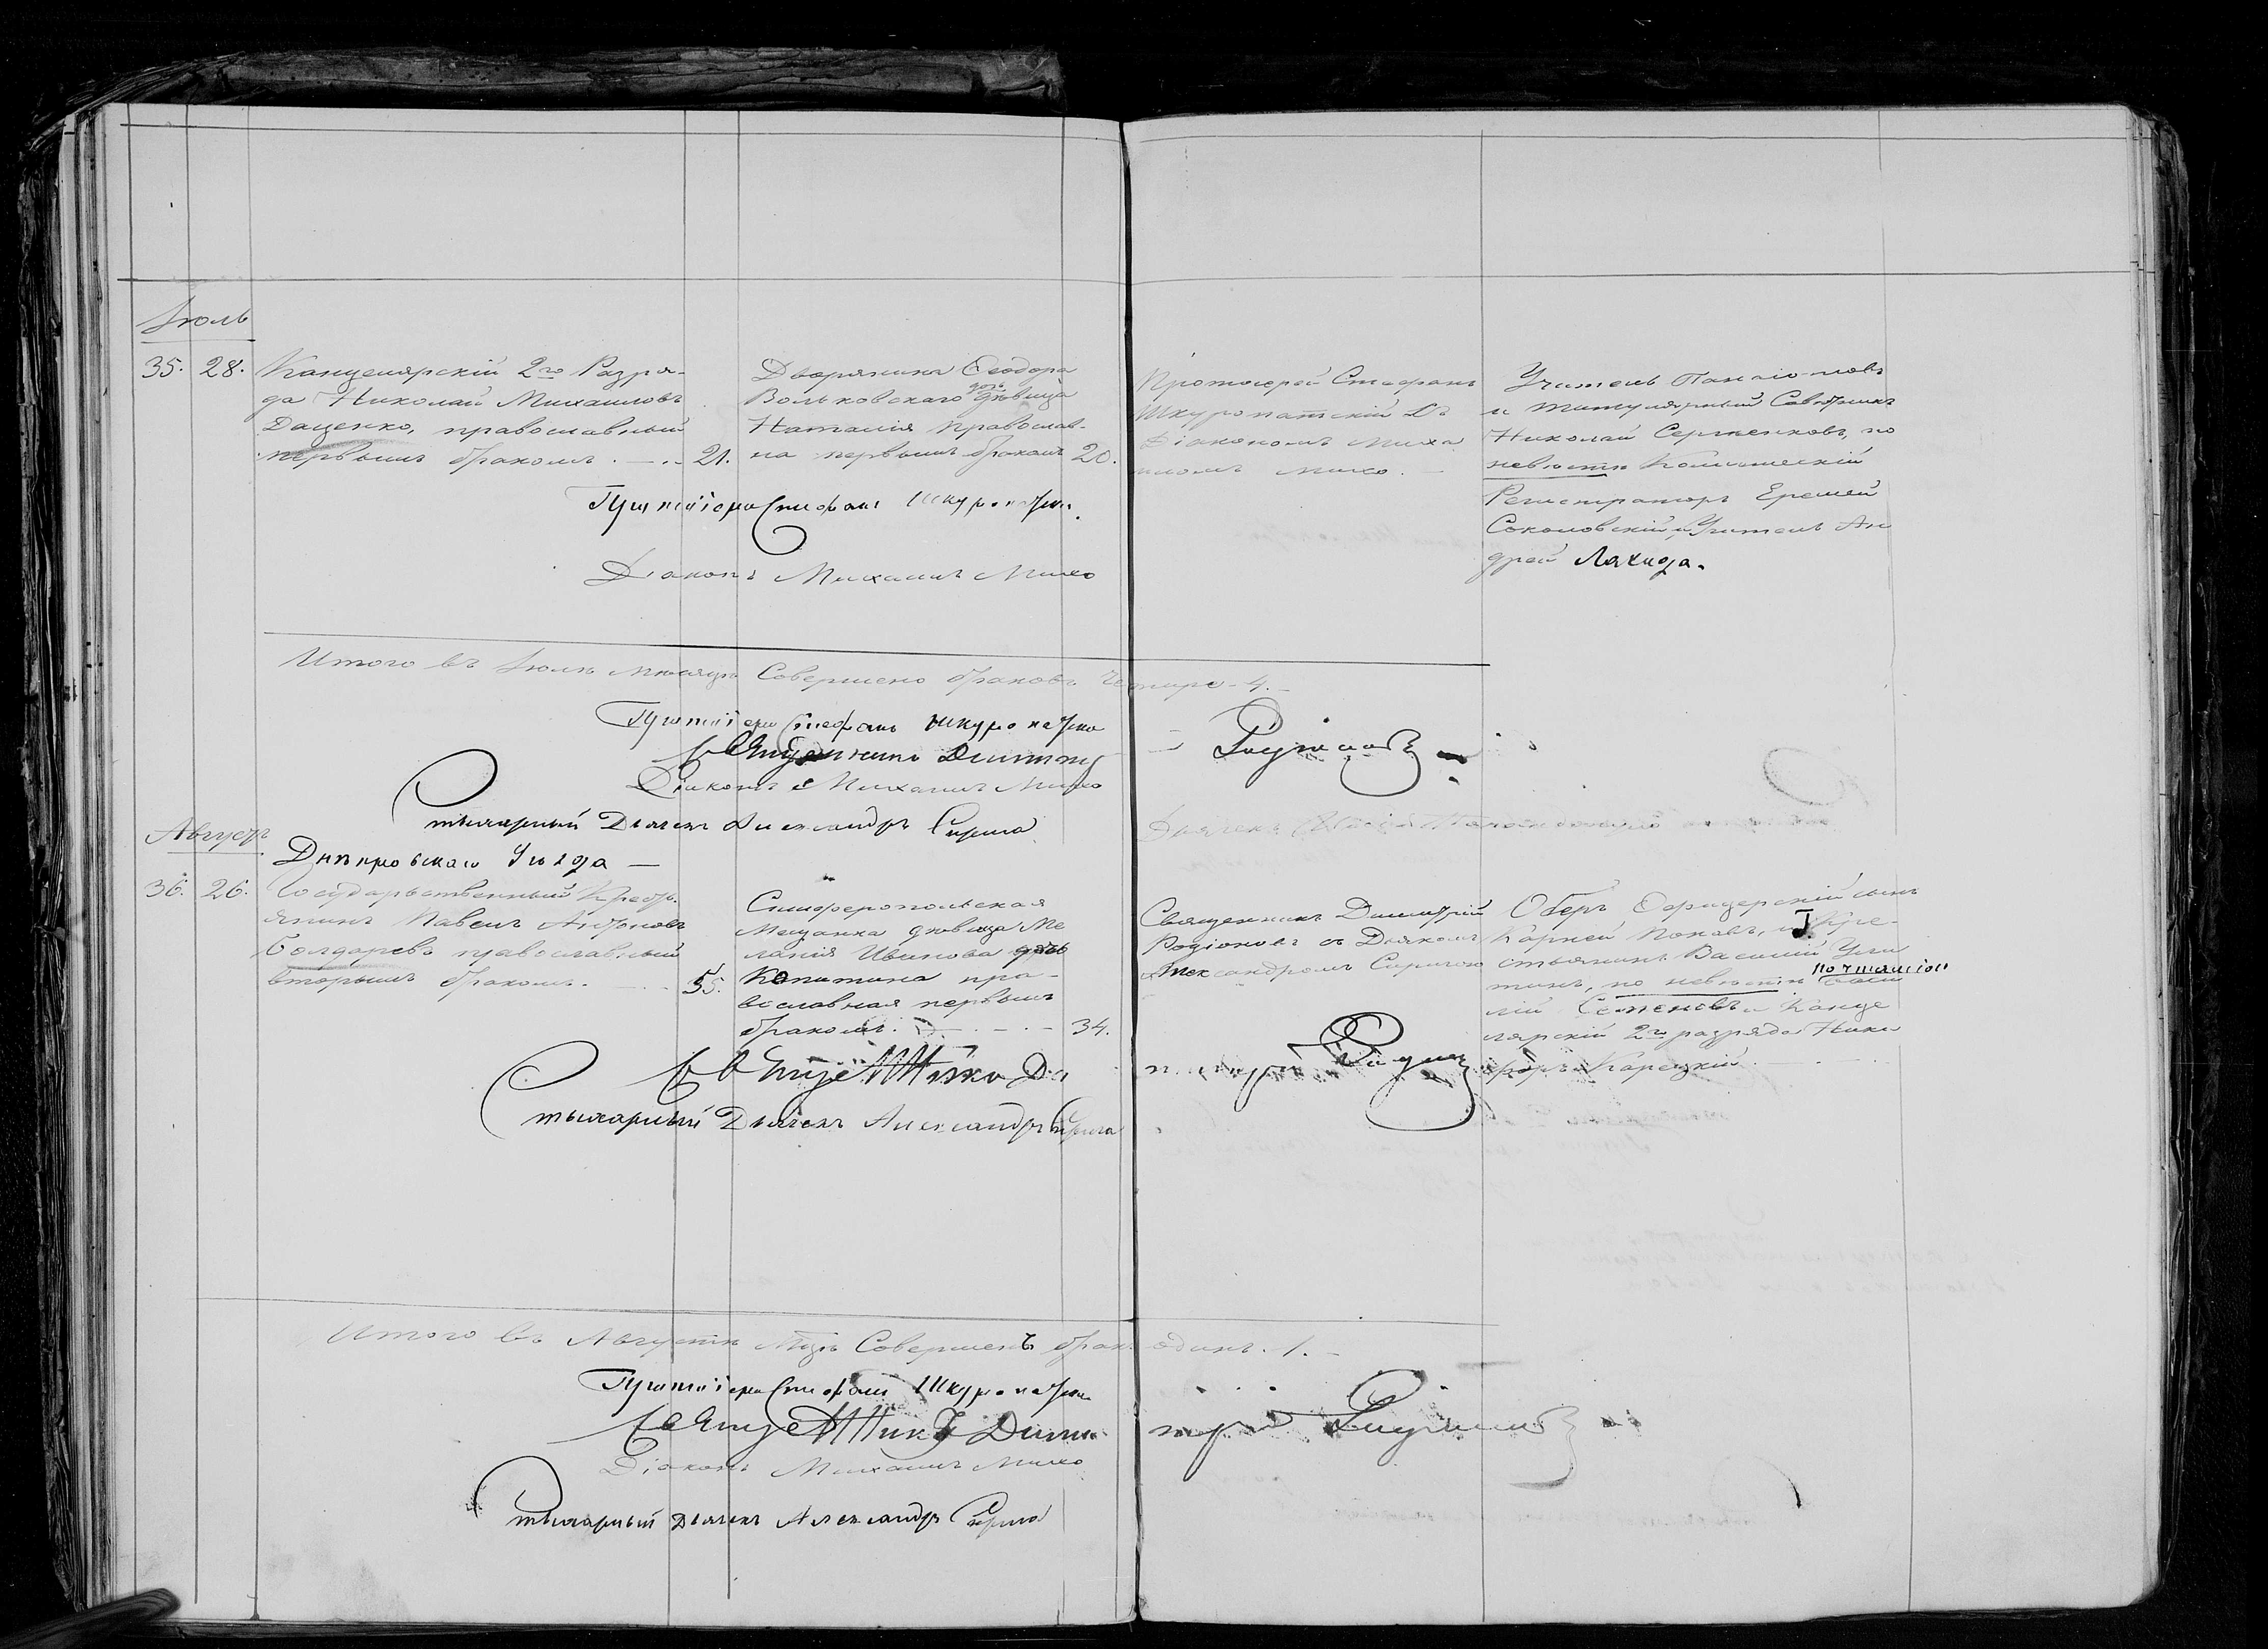 Іюль
35. 28. Канцелярскій 2го Разря-
да Николай Михаиловъ
Даценко, православный
первымъ бракомъ. 21.
Дворянина Ѳеодора
Вольковскаго дочь дѣвица
Наталія православ-
на первымъ бракомъ 20.
Протоіерей Стефанъ
Шкуропатскій съ
Діакономъ Миха
иломъ
Учитель
и титулярный Совѣтникъ
Николай Сергѣенковъ, по
невѣстѣ Коллежскій
Регистраторъ Еремей
Соколовскій и Учитель Ан
дрей Лахида.
Протоіерей Стефанъ
Діаконъ Михаилъ
Итого въ Іюлѣ мѣсяцѣ Совершено браковъ четыре 4.
Протоіерей Стефанъ
Священникъ Димитрій Родіоновъ
Діаконъ Михаилъ
стихарный Дьячекъ Александръ Сирига
Августъ
Днѣпровскаго Уѣзда
36. 26. Государственный Кресть-
янинъ Павелъ Антоновъ
Болдаревъ православный
вторымъ бракомъ. 55.
Симферопольская
Мещанка дѣвица Ме
ланія Иванова дочь
Копитина пра-
вославная первымъ
бракомъ. 34.
Священникъ Димитрій
Родіоновъ съ Дьячкомъ
Александромъ Сиригою
Оберъ Офицерскій сынъ
Карней Поповъ, и Кре-
стьянинъ Василий
по невѣстѣ
Семеновъ и Канце
лярскій 2го разряда Ники
форъ Карецкій.
Священникъ Димитрій Родіоновъ
стихарный Дьячекъ Александръ Сирига
Итого въ Августѣ Мцѣ Совершенъ бракъ одинъ. 1.
Протоіерей Стефанъ
Священникъ Димитрій Родіоновъ
Діаконъ Михаилъ
стихарный Дьячекъ Александръ Сирига